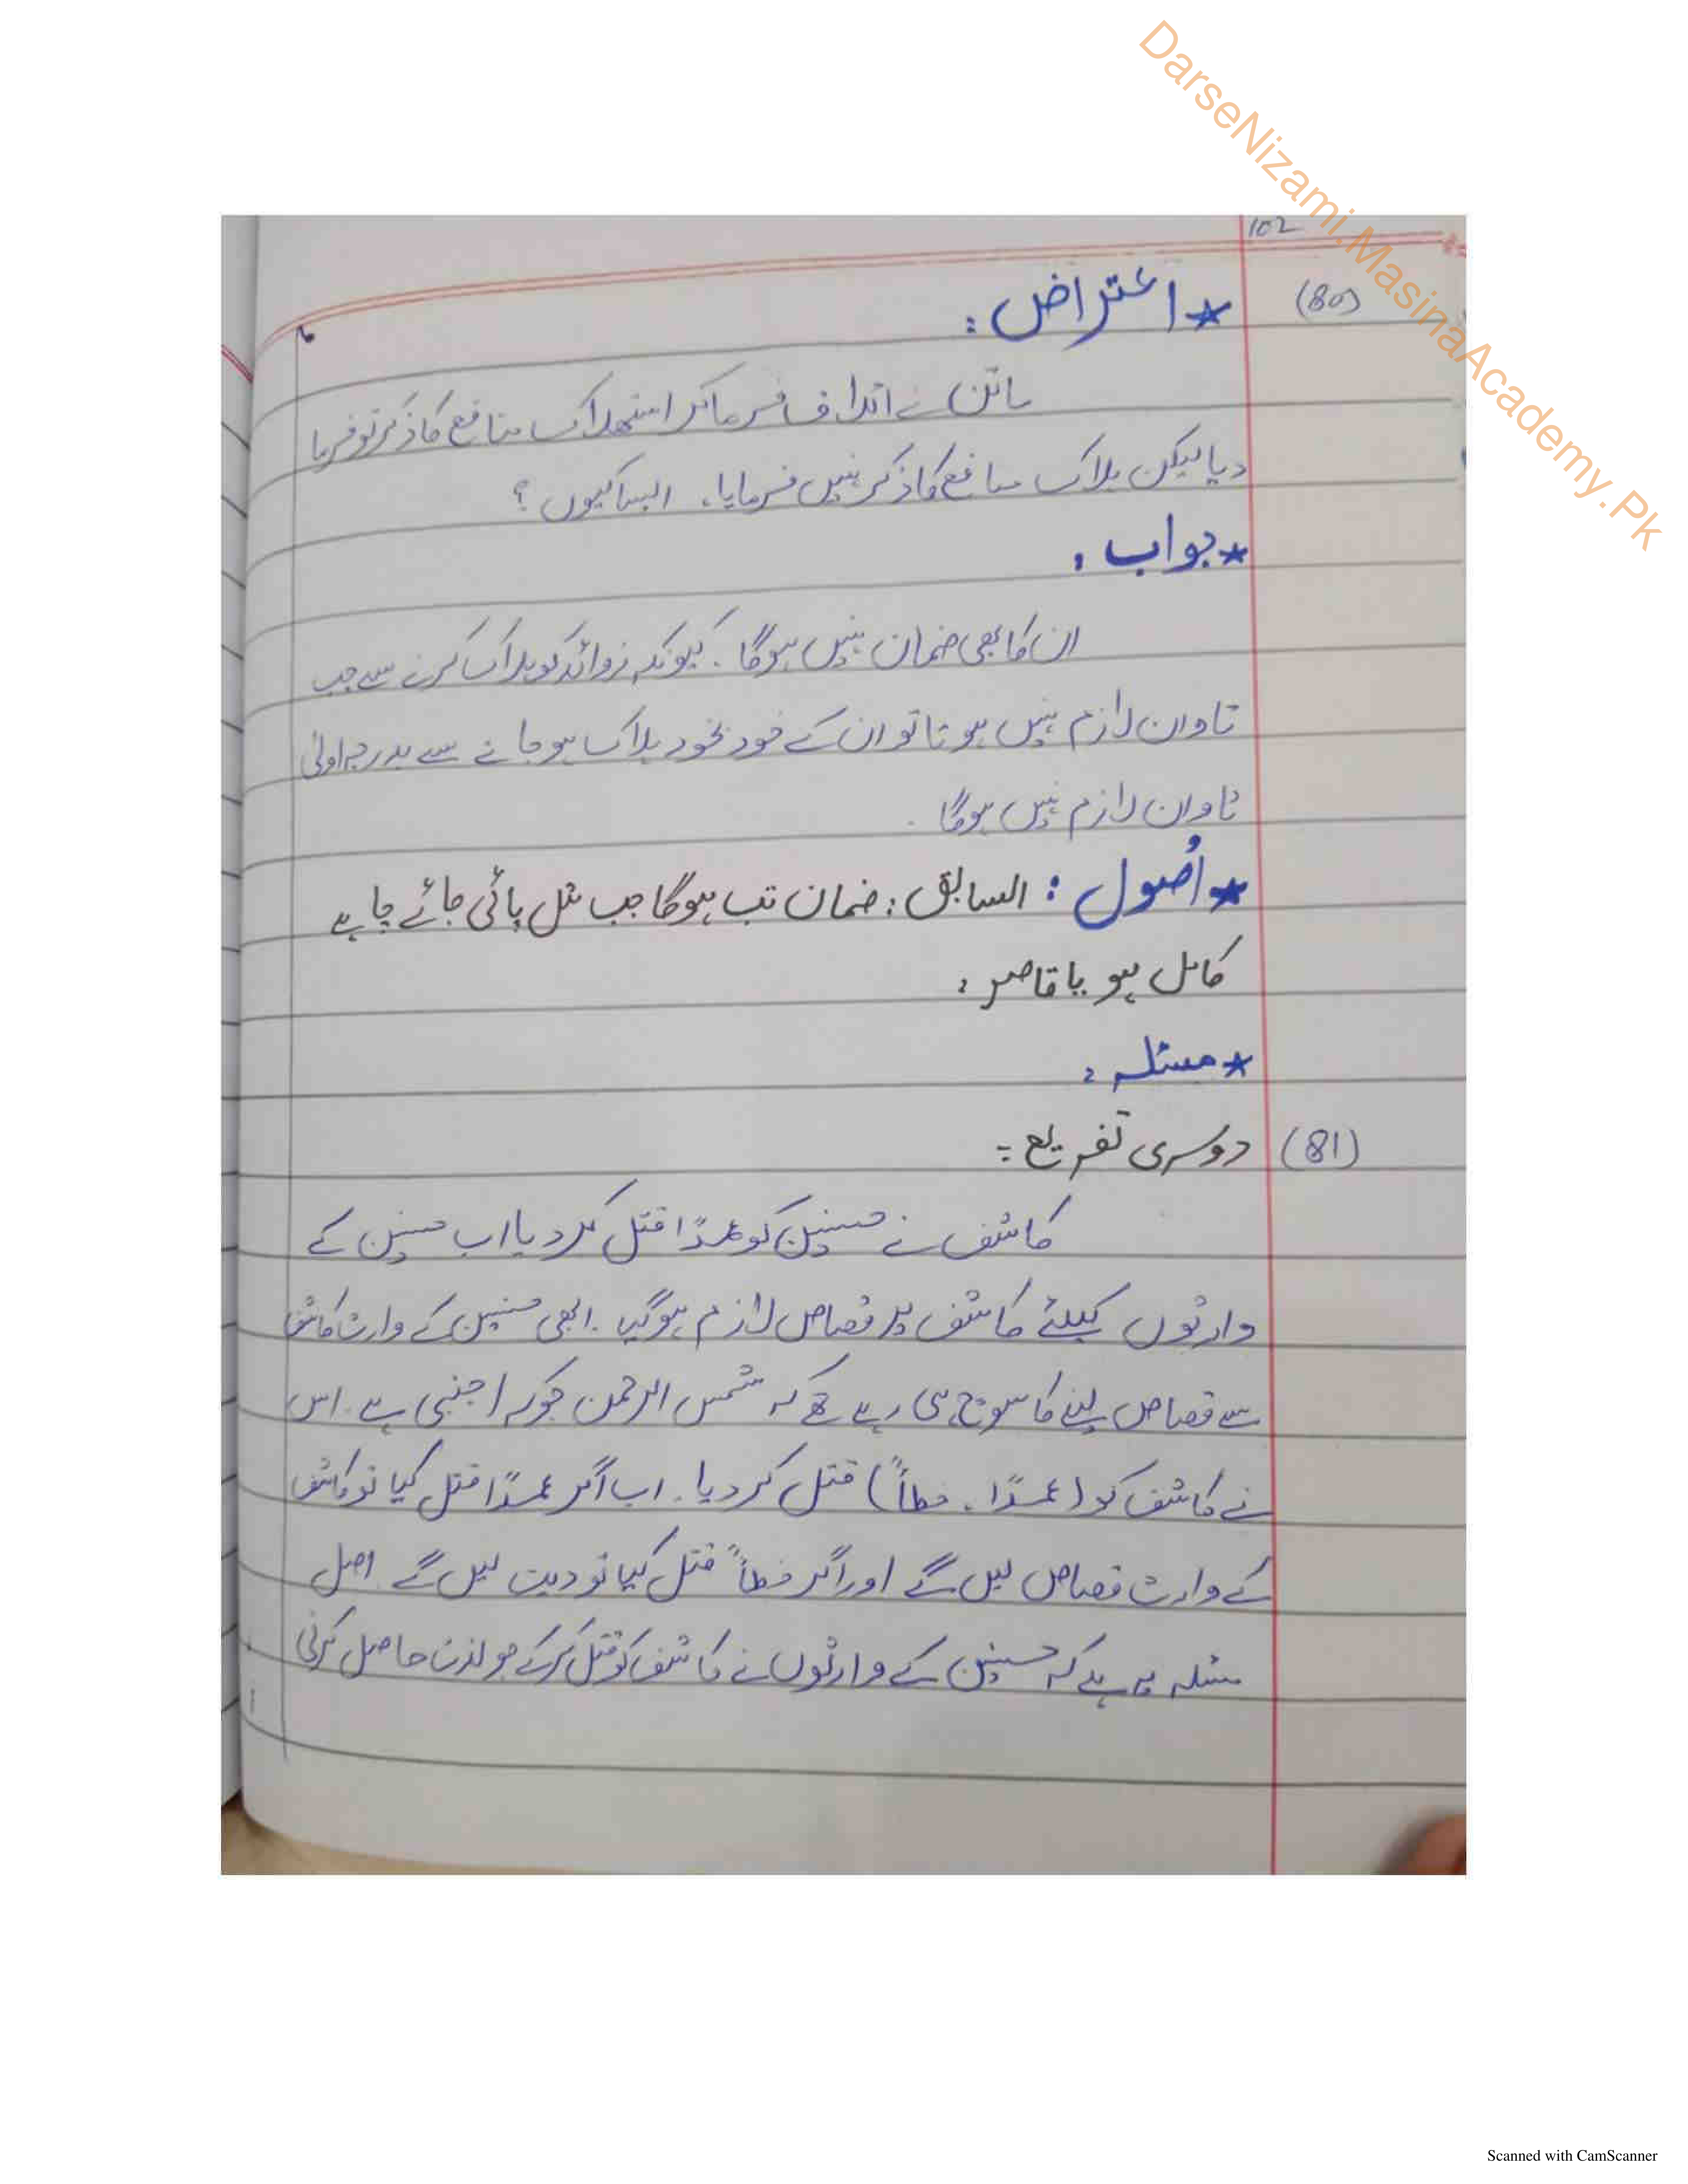 DarseNizami.MasinaAcademy.Pk
102
(80) ★ اعتراض :
ماتن نے اتلاف فرما کر استھلاک منافع کا ذکر تو فرما
دیا لیکن ہلاک منافع کا ذکر نہیں فرمایا۔ ایسا کیوں ؟
★ جواب :
ان کا بھی ضمان نہیں ہوگا۔ کیونکہ زوائد کو ہلاک کرنے سے جب
تاوان لازم نہیں ہوتا تو ان کے خود بخود ہلاک ہو جانے سے بدرجہ اولیٰ
تاوان لازم نہیں ہوگا۔
★ اُصول : السابق : ضمان تب ہوگا جب مثل پائی جائے چاہے
کامل ہو یا قاصر :
★ مسئلہ :
(81) دوسری تفریع :-
کاشف نے حسنین کو عمدًا قتل کر دیا اب حسنین کے
وارثوں کیلئے کاشف پر قصاص لازم ہوگیا۔ ابھی حسنین کے وارث کاشف
سے قصاص لینے کا سوچ ہی رہے تھے کہ شمس الرحمن جو کہ اجنبی ہے۔ اس
نے کاشف کو (عمدًا ، خطأً) قتل کر دیا۔ اب اگر عمدًا قتل کیا تو کاشف
کے وارث قصاص لیں گے اور اگر خطأً قتل کیا تو دیت لیں گے۔ اصل
مسئلہ یہ ہے کہ حسنین کے وارثوں نے کاشف کو قتل کر کے جو لذت حاصل کرنی
Scanned with CamScanner